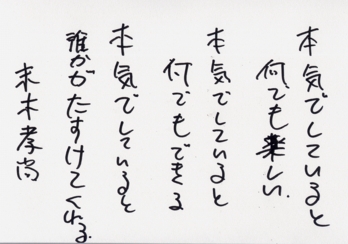 本気でしていると
何でも楽しい.
本気でしていると
何でもできる
本気でしていると
誰かがたすけてくれる.
末木孝尚